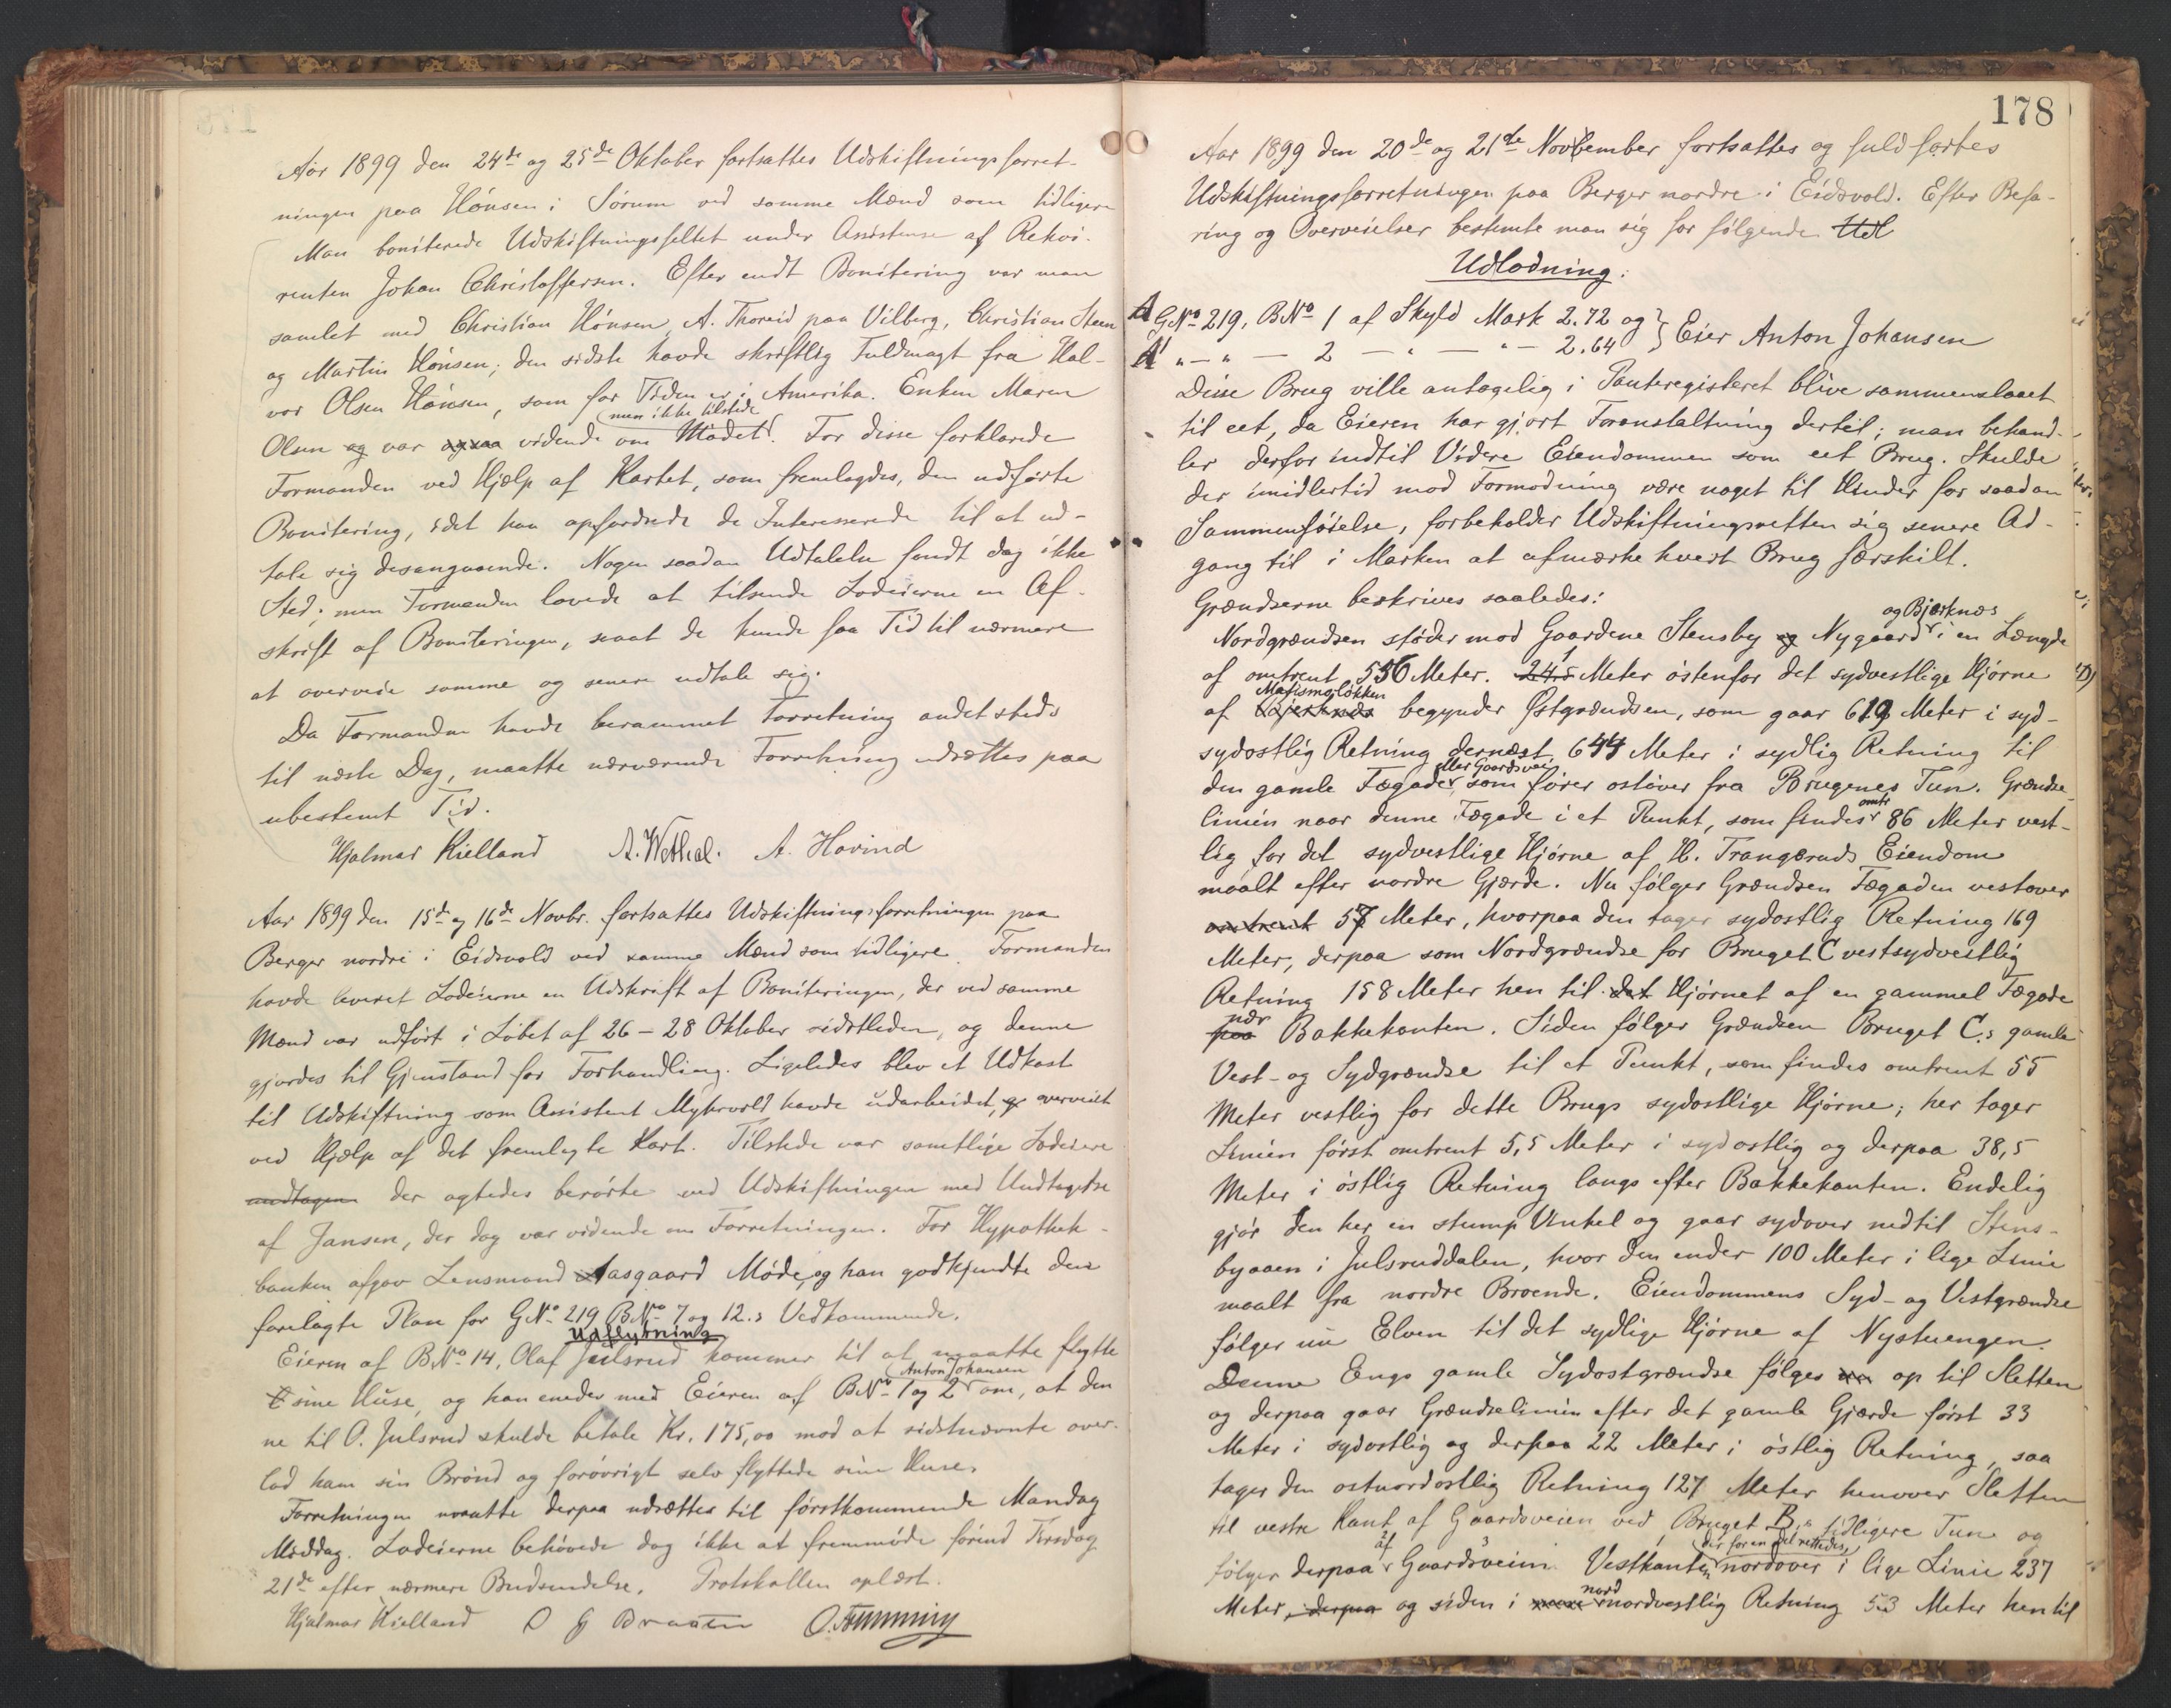 Aar 1899 den 24de og 25de Oktober fortsattes Udskiftningsforret-
ningen paa Hønsen i Sørum ved samme Mænd som tidligere
Man boniterede Udskiftningsfeltet under Assistense af Rekvi-
renten Johan Christoffersen. Efter endt Bonitering var man
samlet med Christian Hønsen, A. Thoreid paa Vilberg, Christian Steen
og Martin Hønsen; den sidste havde skriftlig Fuldmagt fra Hal-
vor Olsen Hønsen, som for Tiden er i Amerika. Enken Maren
Olsen og var ogsaa vidende om Mødet men ikke tilstede. For disse forklarede
Formanden ved Hjælp af Kartet, som fremlagdes, den udførte
Bonitering, idet han opfordrede de Interesserede til at ud-
tale sig desangaaende. Nogen saadan Udtalelse fandt dog ikke
Sted; men Formanden lovede at tilsende Lodeierne en Af-
skrift af Boniteringen, saaat de kunde faa Tid til nærmere
at overveie samme og senere udtale sig.
Da Formanden havde berammet Forretning andetsteds
til næste Dag, maatte nærværende Forretning udsættes paa
ubestemt Tid.
Hjalmar Kielland A. Wethal. A. Hovind
Aar 1899 den 15de og 16de Novbr. fortsattes Udskiftningsforretningen paa
Berger nordre i Eidsvold ved samme Mænd som tidligere. Formanden
havde leveret Lodeierne en Udskrift af Boniteringen, der ved samme
Mænd var udført i Løbet af 26 – 28 Oktober sidstleden, og denne
gjordes til Gjenstand for Forhandling. Ligeledes blev et Udkast
til Udskiftning som Assistent Mykvold havde udarbeidet, og overveiet
ved Hjælp af det fremlagte Kart. Tilstede var samtlige Lodeiere
undtagen der agtedes berørte ved Udskiftningen med Undtagelse
af Jansen, der dog var vidende om Forretningen. For Hypothek-
banken afgav Lensmand Aasgaard Møde, og han godkjendte den
forelagte Plan for GNo 219 BNo 7 og 12.s Vedkommende.
Udflytning
Eieren af BNo 14, Olaf Julsrud kommer til at maatte flytte
sine Huse, og han enedes med Eieren af BNo 1 og 2 Anton Johansen om, at den
ne til O. Julsrud skulde betale Kr. 175,00 mod at sidstnævnte over-
lod ham sin Brønd og forøvrigt selv flyttede sine Huse.
Forretningen maatte derpaa udsættes til førstkommende Mandag
Middag. Lodeierne behøvede dog ikke at fremmøde førend Tirsdag
21de efter nærmere Budsendelse. Protokollen oplæst.
Hjalmar Kielland O G Braaten O. Fremming
178
Aar 1899 den 20de og 21de November fortsattes og fuldførtes
Udskiftningsforretningen paa Berger nordre i Eidsvold. Efter Befa-
ring og Overveielser bestemte man sig for følgende Udl
Udlodning:
A GNo 219, BNo 1 af Skyld Mark 2.72 og } Eier Anton Johansen
A' „ – „ – 2 – „ – „ – 2.64
Disse Brug ville antagelig i Panteregisteret blive sammenslaaet
til eet, da Eieren har gjort Foranstaltning dertil; man behand-
ler derfor indtil Videre Eiendommen som eet Brug. Skulde
der imidlertid mod Formodning være noget til Hinder for saadan
Sammenføielse, forbeholder Udskiftningsretten sig senere Ad-
gang til i Marken at afmærke hvert Brug særskilt.
Grændserne beskrives saaledes:
Nordgrændsen støder mod Gaardene Stensby og Nygaard og Bjærknæs i en Længde
af omtrent 556 Meter. 241 Meter østenfor det sydvestlige Hjørne
af Bjerknæs Mafismoløkken begynder Østgrændsen, som gaar 619 Meter i syd-
sydostlig Retning dernæst 644 Meter i sydlig Retning til
den gamle Fægade eller Gaardsvei, som fører ostover fra Brugenes Tun. Grændse-
linien naar denne Fægade i et Punkt, som findes omtr 86 Meter vest-
lig for det sydvestlige Hjørne af H. Trangeruds Eiendom
maalt efter nordre Gjærde. Nu følger Grændsen Fægaden vestover
omtrent 57 Meter, hvorpaa den tager sydostlig Retning 169
Meter, derpaa som Nordgrændse for Bruget C vestsydvestlig
Retning 158 Meter hen til det Hjørnet af en gammel Fægade
paa nær Bakkekanten. Siden følger Grændsen Bruget C.s gamle
Vest- og Sydgrændse til et Punkt, som findes omtrent 55
Meter vestlig for dette Brugs sydostlige Hjørne; her tager
Linien først omtrent 5,5 Meter i sydostlig og derpaa 38,5
Meter i østlig Retning langs efter Bakkekanten. Endelig
gjør den her en stump Vinkel og gaar sydover ned til Stens-
byaaen i Julsruddalen, hvor den ender 100 Meter i lige Linie
maalt fra nordre Broende. Eiendommens Syd- og Vestgrændse
følger nu Elven til det sydlige Hjørne af Nystuengen.
Denne Engs gamle Sydostgrændse følges nu op til Sletten
og derpaa gaar Grændselinien efter det gamle Gjærde først 33
Meter i sydostlig og derpaa 22 Meter i østlig Retning, saa
tager den ostnordostlig Retning 127 Meter henover Sletten
til vestre Kant af Gaardsveien ved Bruget B.s tidligere Tun og
følger derpaa af Gaardsveien Vestkanten der for en Del rettedes, nordover i lige Linie 237
Meter, derpaa og siden i nord nordvestlig Retning 53 Meter hen til